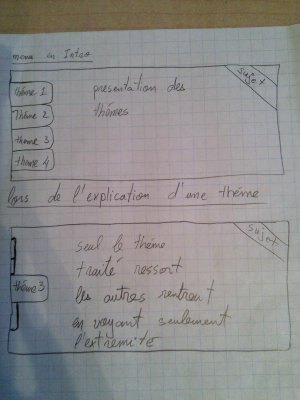 menu en Intro
sujet
thème 1
presentation des
thèmes
Thème 2
theme 3
thème 4
lors de l'explication d'une thème
sujet
seul le thème
traité ressort
thème 3
les autres rentrent
en voyant seulement
l'extremité